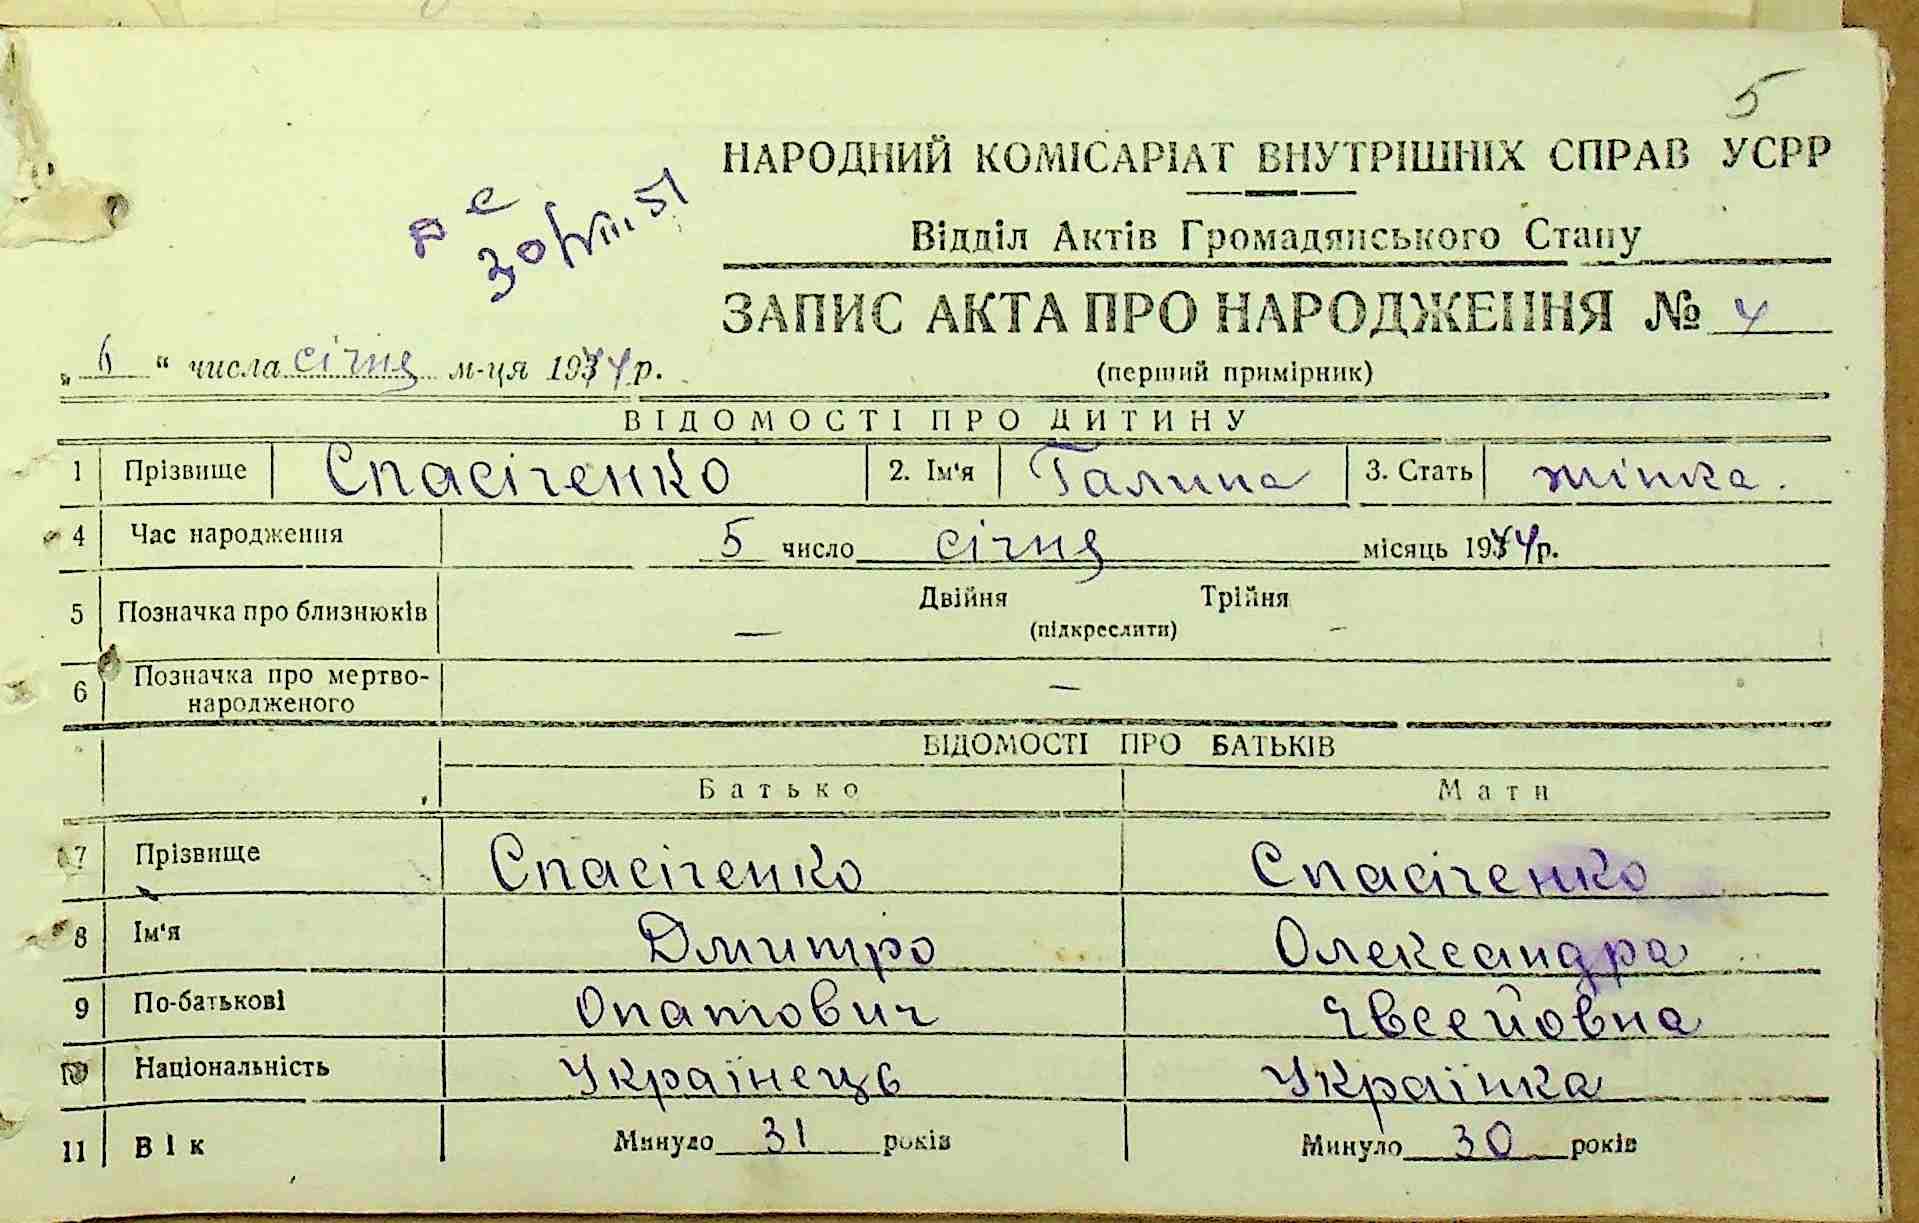 5
НАРОДНИЙ КОМІСАРІАТ ВНУТРІШНІХ СПРАВ УСРР
30/VIII.51
Відділ Актів Громадянського Стану
ЗАПИС АКТА ПРО НАРОДЖЕННЯ № 4
„ 6 “ числа січня м-ця 1944 р.
(перший примірник)
ВІДОМОСТІ ПРО ДИТИНУ
1 Прізвище Спасіченко 2. Ім'я Галина 3. Стать жінка.
4 Час народження 5 число січня місяць 1944 р.
5 Позначка про близнюків — Двійня Трійня –
(підкреслити)
6 Позначка про мертво-
народженого —
ВІДОМОСТІ ПРО БАТЬКІВ
Батько Мати
7 Прізвище Спасіченко Спасіченко
8 Ім'я Дмитро Олександра
9 По-батькові Опатович Євсейовна
10 Національність Українець Українка
11 Вік Минуло 31 років Минуло 30 років